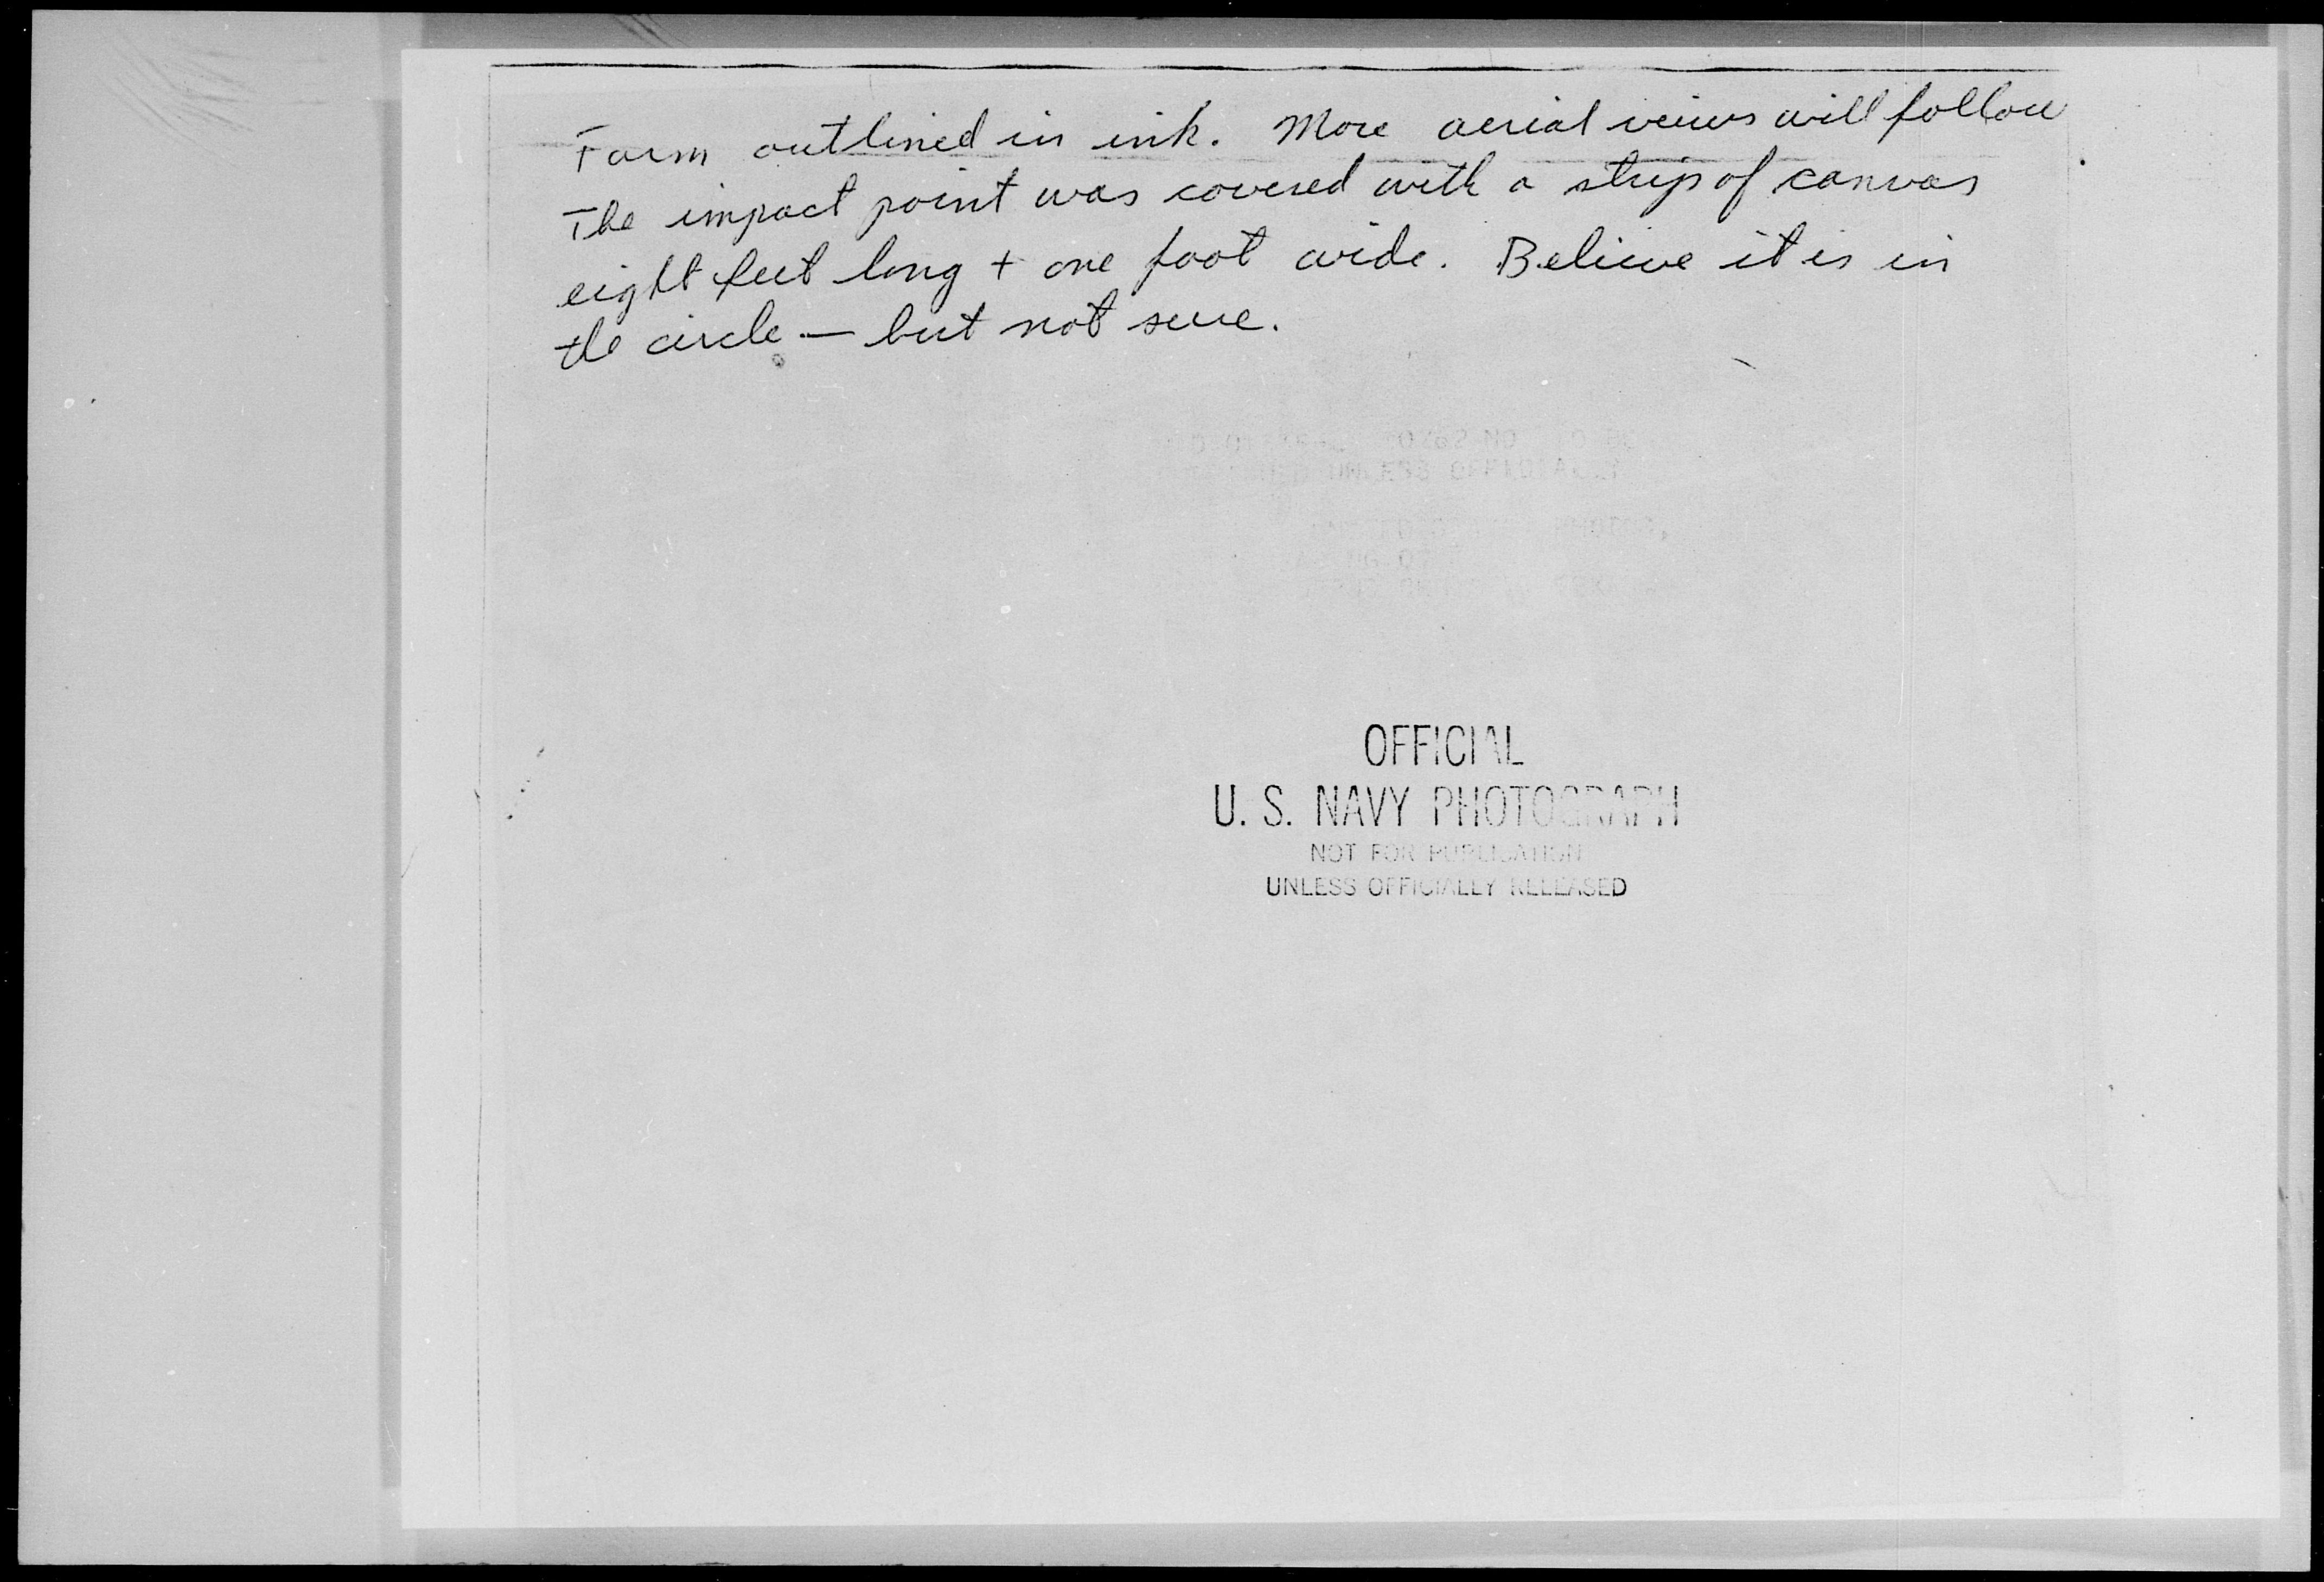 Farm outlined in ink. More aerial veiws will follow.
The impact point was covered with a strip of canvas
eight feet long + one foot wide. Believe it is in
the circle — but not sure.
UNLESS OFFICIALLY
OFFICIAL
U. S. NAVY PHOTOGRAPH
NOT FOR PUBLICATION
UNLESS OFFICIALLY RELEASED